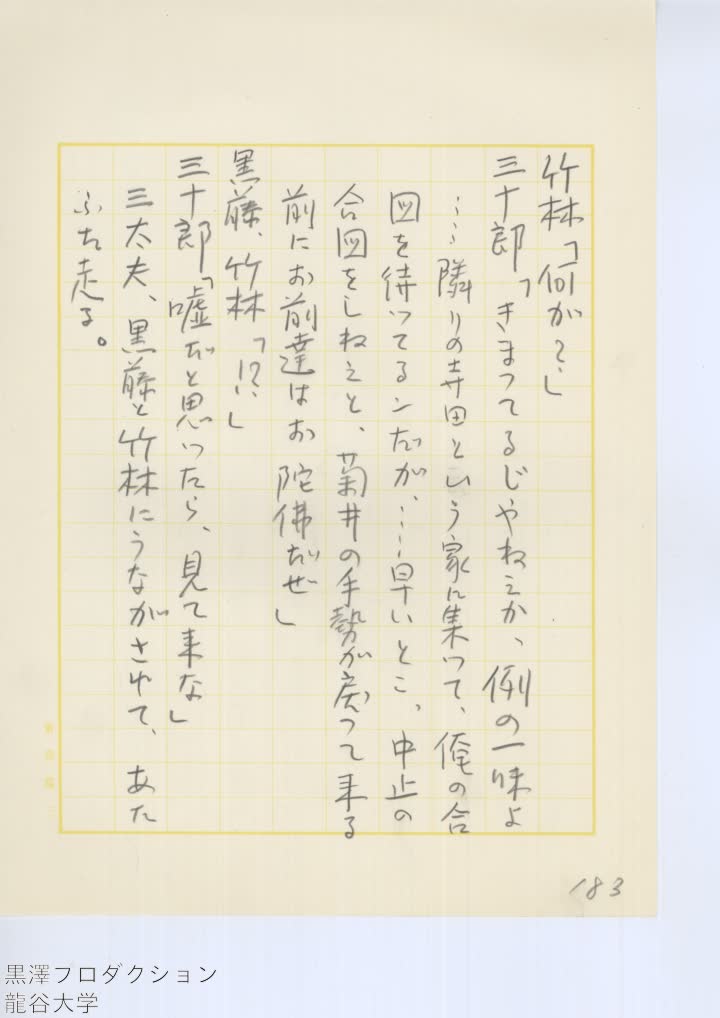 竹林「何が？」
三十郎「きまつてるじやねえか、例の一味よ
……隣りの寺田という家に集つて、俺の合
図を待つてるンだが、……早いとこ、中止の
合図をしねえと、菊井の手勢が戻つて来る
前にお前達はお陀佛だぜ」
黒藤、竹林「!?」
三十郎「嘘だと思つたら、見て来な」
三太夫、黒藤と竹林にうながされて、あた
ふた走る。
183
黒澤プロダクション
龍谷大学